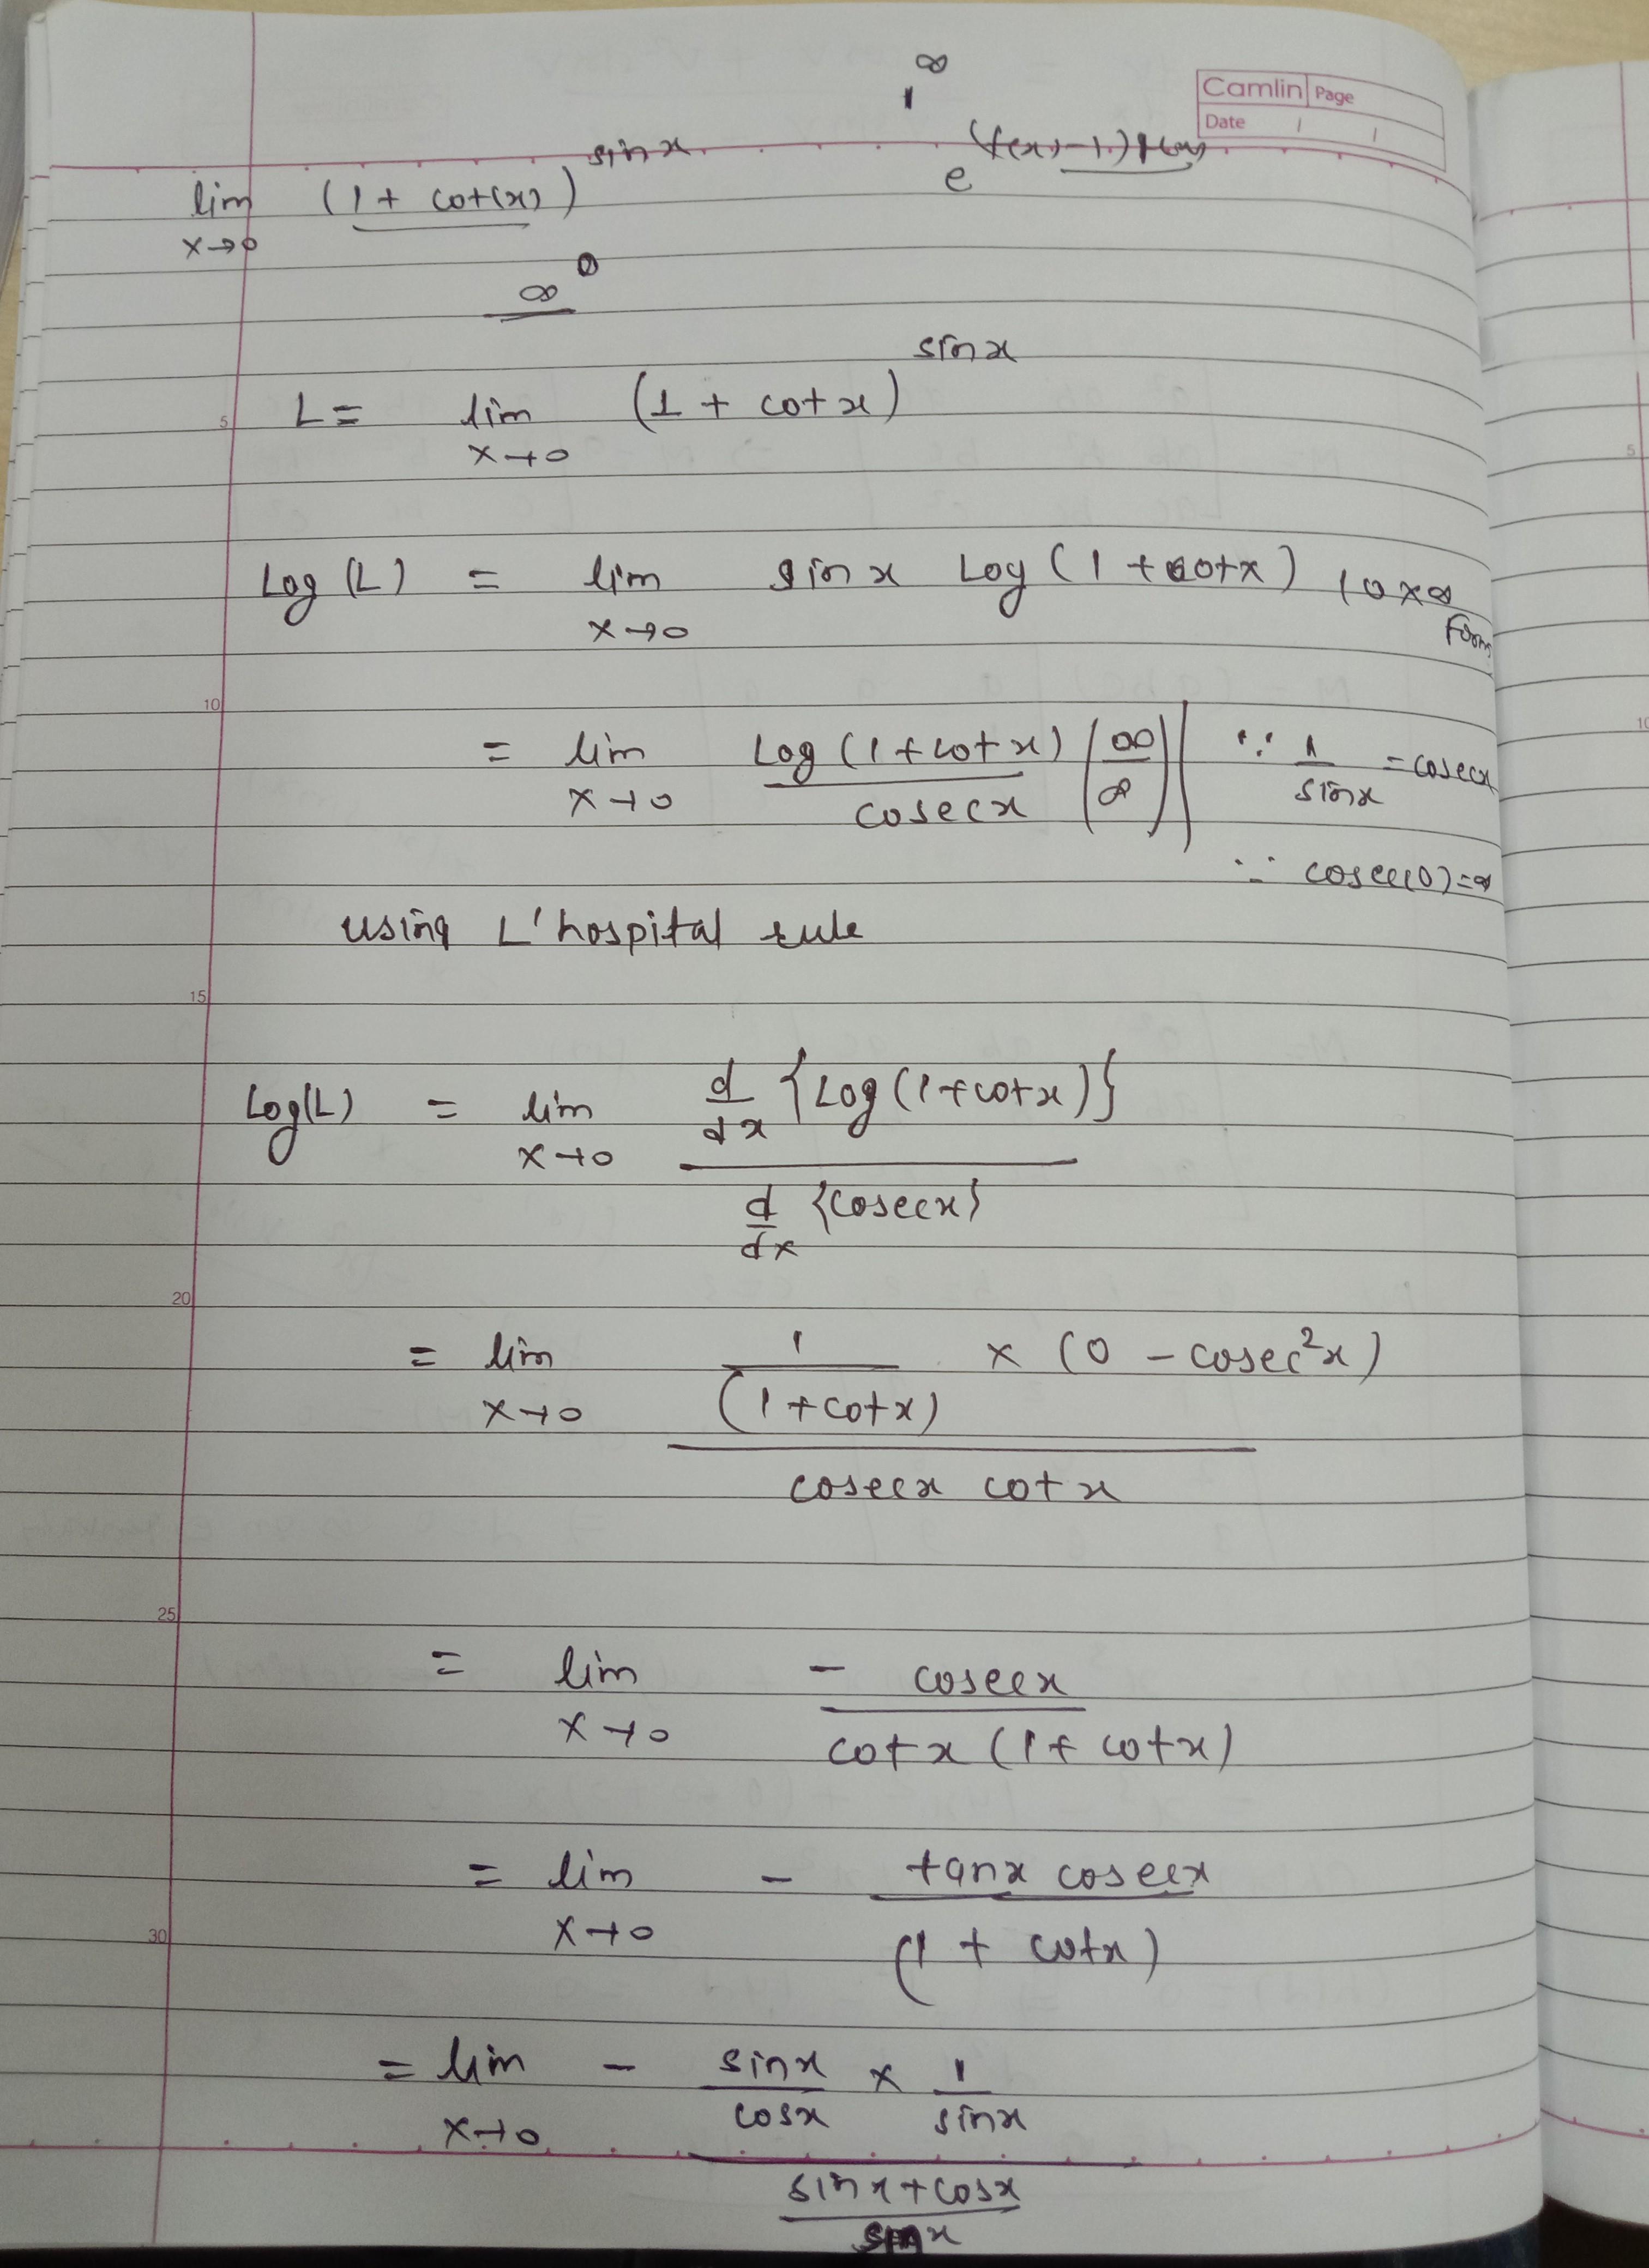 1^∞
Camlin Page
Date / /
e^(f(x)-1)
lim (1 + cot(x))^sinx
x→0
∞^0
L = lim (1 + cotx)^sinx
x→0
5
Log (L) = lim sinx Log (1 + cotx) (0×∞
x→0 Form
10
= lim Log (1+cotx) / cosecx (∞/∞) | ∵ 1/sinx = cosecx
x→0
∵ cosec(0)=∞
using L'hospital rule
15
Log(L) = lim d/dx {Log (1+cotx)}
x→0
d/dx {cosecx}
20
= lim 1/(1+cotx) × (0 - cosec²x)
x→0
cosecx cotx
25
= lim - cosecx
x→0 cotx (1+ cotx)
= lim - tanx cosecx
x→0 (1 + cotx)
30
= lim - sinx/cosx × 1/sinx
x→0
sinx+cosx
sinx
5
10